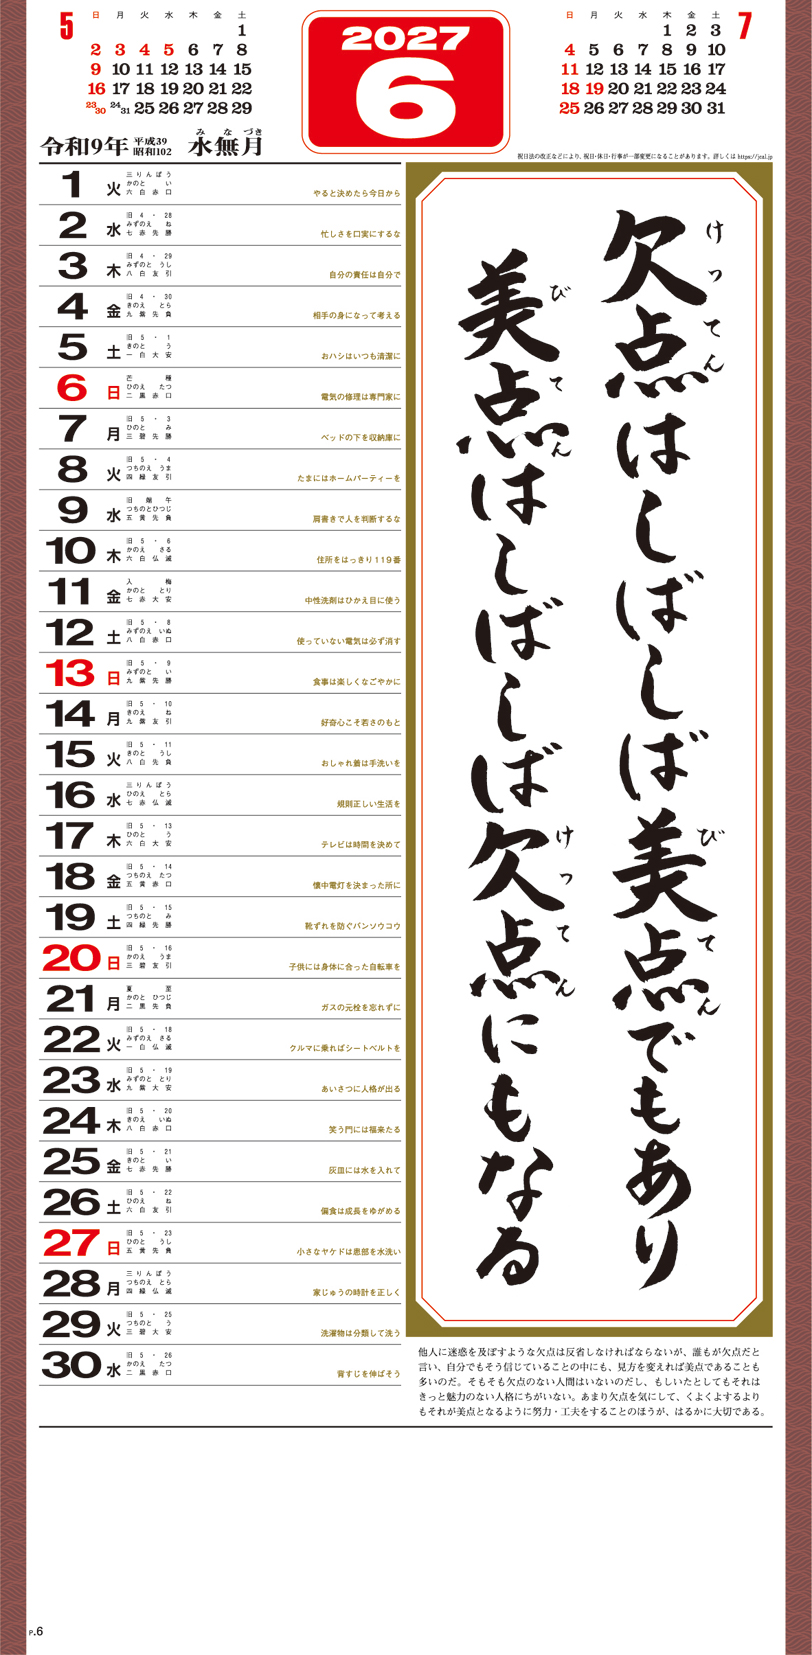 5
日 月 火 水 木 金 土
1
2 3 4 5 6 7 8
9 10 11 12 13 14 15
16 17 18 19 20 21 22
23/30 24/31 25 26 27 28 29
2027
6
7
日 月 火 水 木 金 土
1 2 3
4 5 6 7 8 9 10
11 12 13 14 15 16 17
18 19 20 21 22 23 24
25 26 27 28 29 30 31
令和9年 平成39 昭和102 水無月 みなづき
祝日法の改正などにより、祝日・休日・行事が一部変更になることがあります。詳しくは https://jcal.jp
1 火 三りんぼう かのとい 六白赤口 やると決めたら今日から
2 水 旧4・28 みずのえね 七赤先勝 忙しさを口実にするな
3 木 旧4・29 みずのとうし 八白友引 自分の責任は自分で
4 金 旧4・30 きのえとら 九紫先負 相手の身になって考える
5 土 旧5・1 きのとう 一白大安 おハシはいつも清潔に
6 日 芒種 ひのえたつ 二黒赤口 電気の修理は専門家に
7 月 旧5・3 ひのとみ 三碧先勝 ベッドの下を収納庫に
8 火 旧5・4 つちのえうま 四緑友引 たまにはホームパーティーを
9 水 旧端午 つちのとひつじ 五黄先負 肩書きで人を判断するな
10 木 旧5・6 かのえさる 六白仏滅 住所をはっきり119番
11 金 入梅 かのととり 七赤大安 中性洗剤はひかえ目に使う
12 土 旧5・8 みずのえいぬ 八白赤口 使っていない電気は必ず消す
13 日 旧5・9 みずのとい 九紫先勝 食事は楽しくなごやかに
14 月 旧5・10 きのえね 九紫友引 好奇心こそ若さのもと
15 火 旧5・11 きのとうし 八白先負 おしゃれ着は手洗いを
16 水 三りんぼう ひのえとら 七赤仏滅 規則正しい生活を
17 木 旧5・13 ひのとう 六白大安 テレビは時間を決めて
18 金 旧5・14 つちのえたつ 五黄赤口 懐中電灯を決まった所に
19 土 旧5・15 つちのとみ 四緑先勝 靴ずれを防ぐバンソウコウ
20 日 旧5・16 かのえうま 三碧友引 子供には身体に合った自転車を
21 月 夏至 かのとひつじ 二黒先負 ガスの元栓を忘れずに
22 火 旧5・18 みずのえさる 一白仏滅 クルマに乗ればシートベルトを
23 水 旧5・19 みずのととり 九紫大安 あいさつに人格が出る
24 木 旧5・20 きのえいぬ 八白赤口 笑う門には福来たる
25 金 旧5・21 きのとい 七赤先勝 灰皿には水を入れて
26 土 旧5・22 ひのえね 六白友引 偏食は成長をゆがめる
27 日 旧5・23 ひのとうし 五黄先負 小さなヤケドは患部を水洗い
28 月 三りんぼう つちのえとら 四緑仏滅 家じゅうの時計を正しく
29 火 旧5・25 つちのとう 三碧大安 洗濯物は分類して洗う
30 水 旧5・26 かのえたつ 二黒赤口 背すじを伸ばそう
欠点はしばしば美点でもあり
けってん びてん
美点はしばしば欠点にもなる
びてん けってん
他人に迷惑を及ぼすような欠点は反省しなければならないが、誰もが欠点だと
言い、自分でもそう信じていることの中にも、見方を変えれば美点であることも
多いのだ。そもそも欠点のない人間はいないのだし、もしいたとしてもそれは
きっと魅力のない人格にちがいない。あまり欠点を気にして、くよくよするより
もそれが美点となるように努力・工夫をすることのほうが、はるかに大切である。
P.6